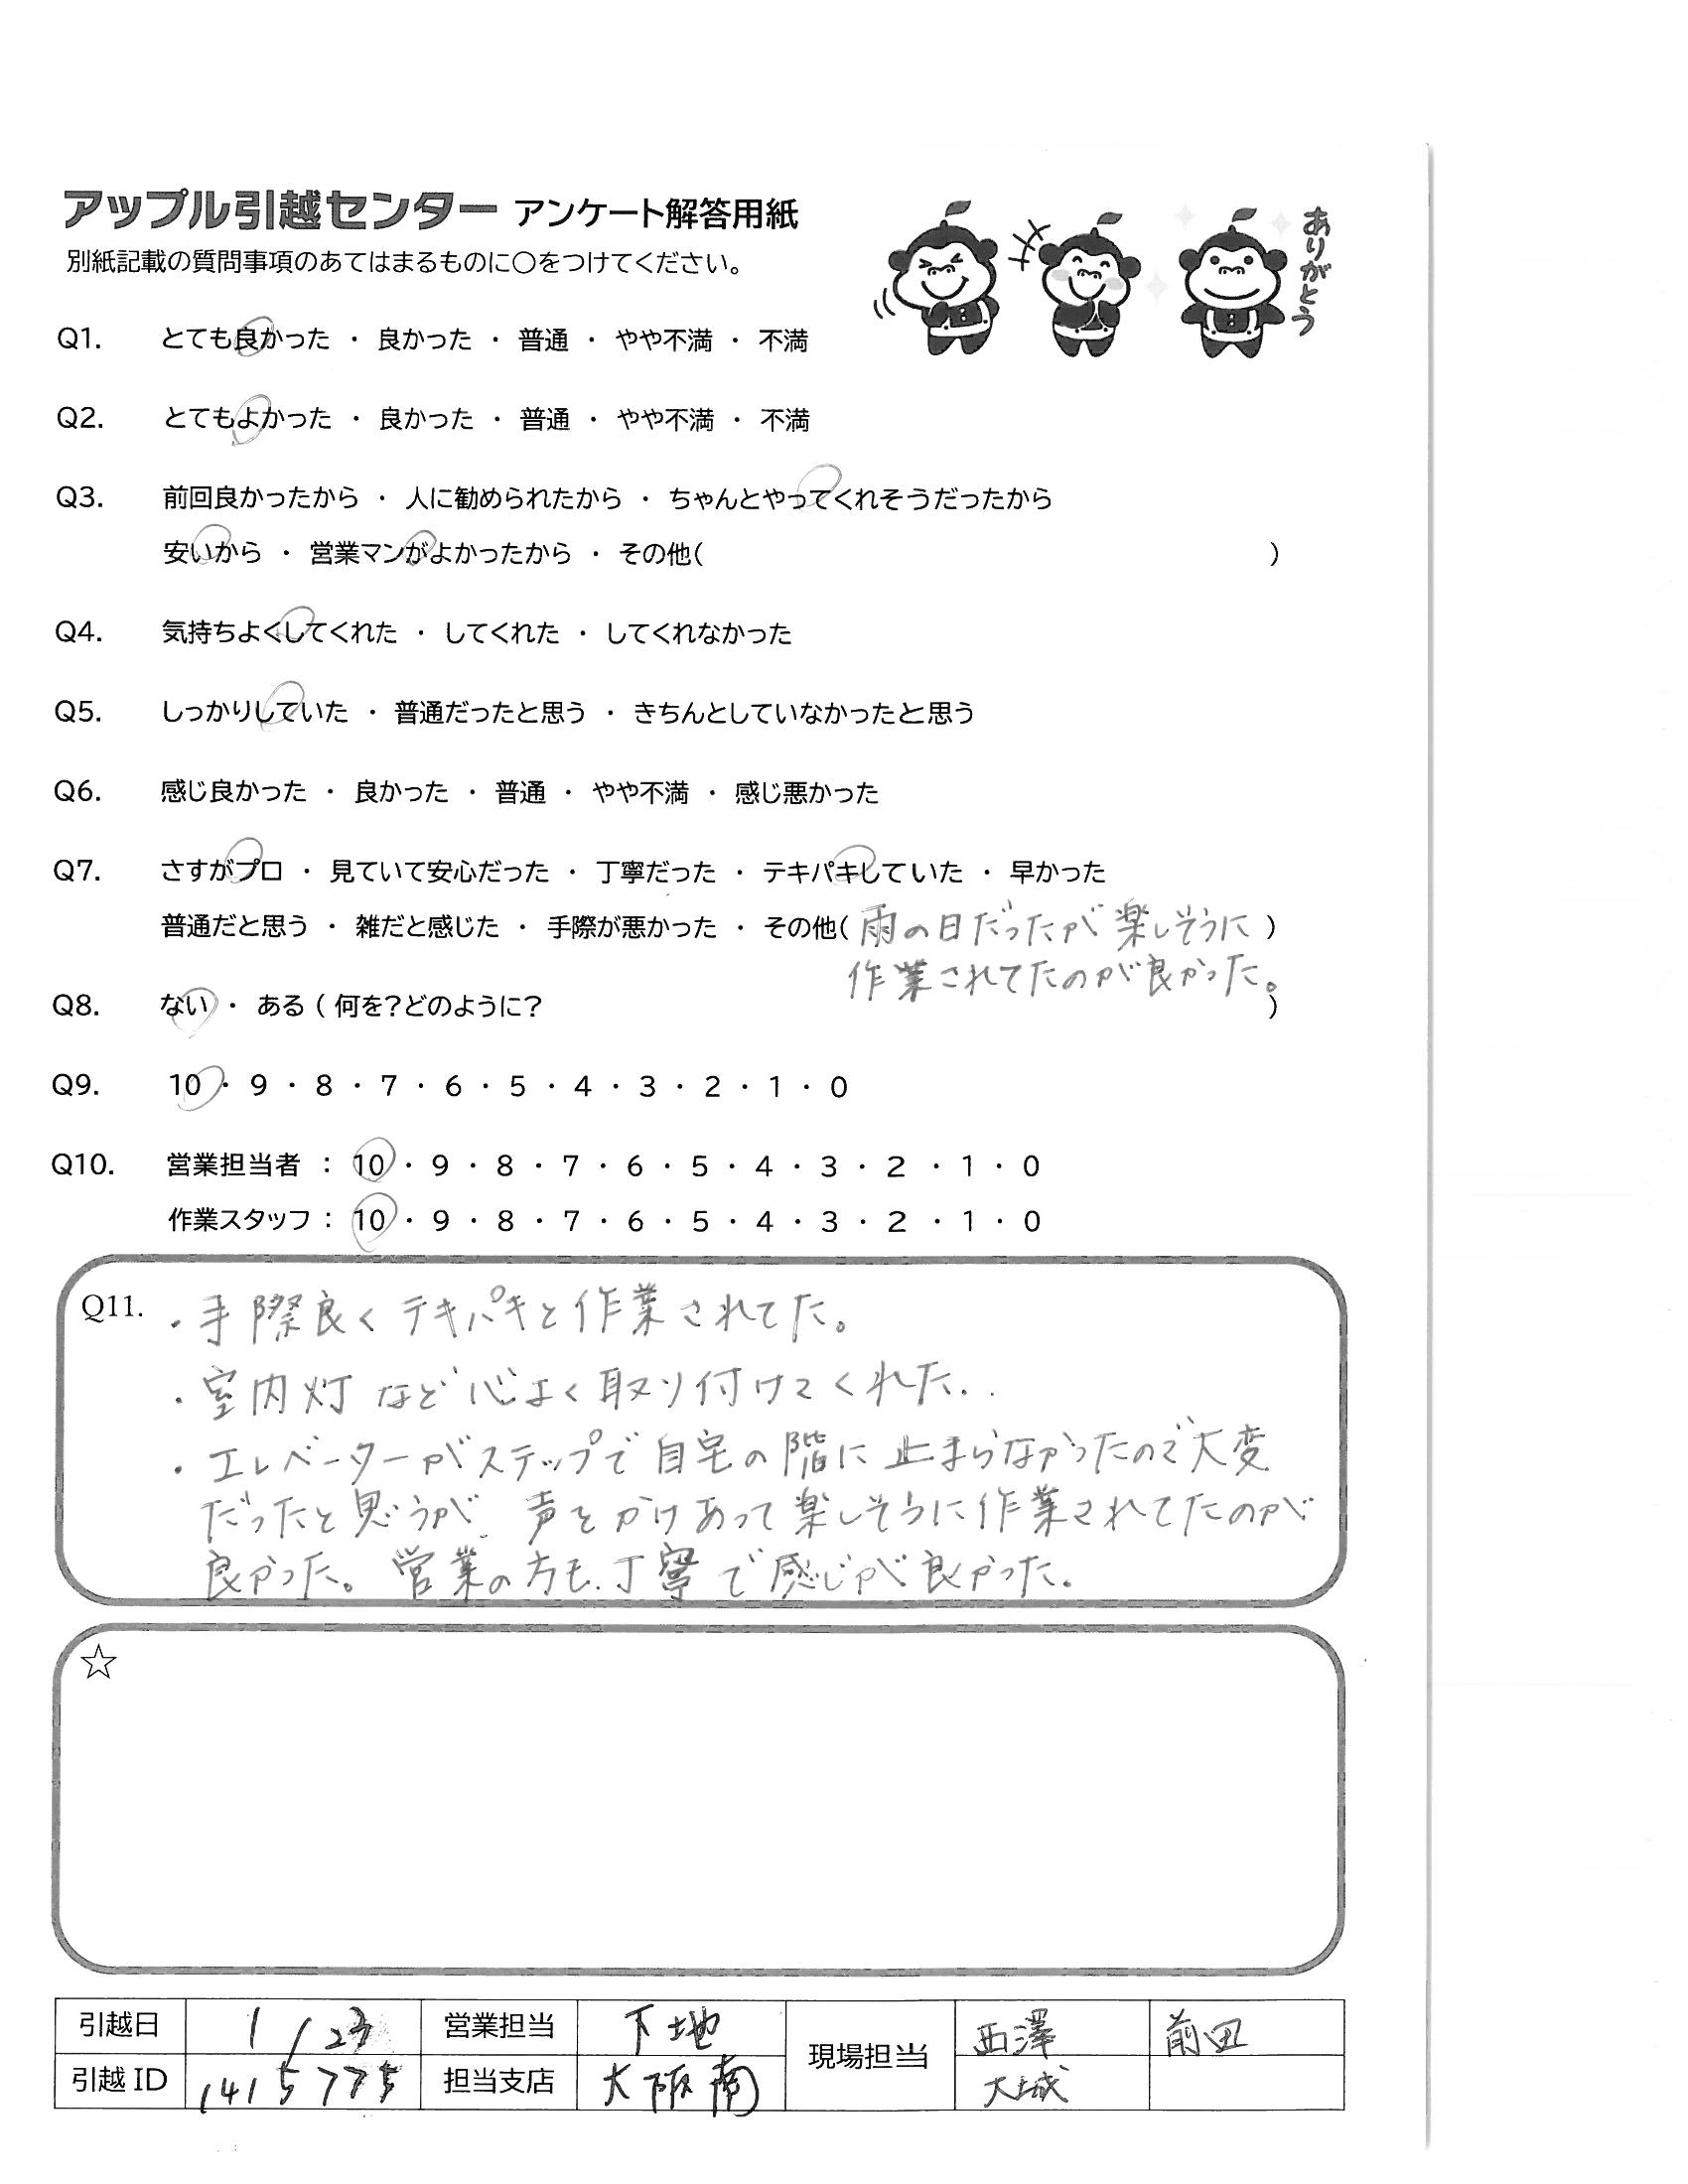 アップル引越センター アンケート解答用紙
ありがとう
別紙記載の質問事項のあてはまるものに○をつけてください。
Q1. とても良かった ・ 良かった ・ 普通 ・ やや不満 ・ 不満
Q2. とてもよかった ・ 良かった ・ 普通 ・ やや不満 ・ 不満
Q3. 前回良かったから ・ 人に勧められたから ・ ちゃんとやってくれそうだったから
安いから ・ 営業マンがよかったから ・ その他( )
Q4. 気持ちよくしてくれた ・ してくれた ・ してくれなかった
Q5. しっかりしていた ・ 普通だったと思う ・ きちんとしていなかったと思う
Q6. 感じ良かった ・ 良かった ・ 普通 ・ やや不満 ・ 感じ悪かった
Q7. さすがプロ ・ 見ていて安心だった ・ 丁寧だった ・ テキパキしていた ・ 早かった
普通だと思う ・ 雑だと感じた ・ 手際が悪かった ・ その他( 雨の日だったが楽しそうに )
作業されてたのが良かった。
Q8. ない ・ ある ( 何を?どのように? )
Q9. 10 ・ 9 ・ 8 ・ 7 ・ 6 ・ 5 ・ 4 ・ 3 ・ 2 ・ 1 ・ 0
Q10. 営業担当者 : 10 ・ 9 ・ 8 ・ 7 ・ 6 ・ 5 ・ 4 ・ 3 ・ 2 ・ 1 ・ 0
作業スタッフ : 10 ・ 9 ・ 8 ・ 7 ・ 6 ・ 5 ・ 4 ・ 3 ・ 2 ・ 1 ・ 0
Q11. ・手際良くテキパキと作業されてた。
・室内灯など心よく取り付けてくれた..
・エレベーターがステップで自宅の階に止まらなかったので大変
だったと思うが、声をかけあって楽しそうに作業されてたのが
良かった。営業の方も、丁寧で感じが良かった。
☆
引越日 1/23 営業担当 下地 現場担当 西澤 前田
引越ID 1415775 担当支店 大阪南 大城